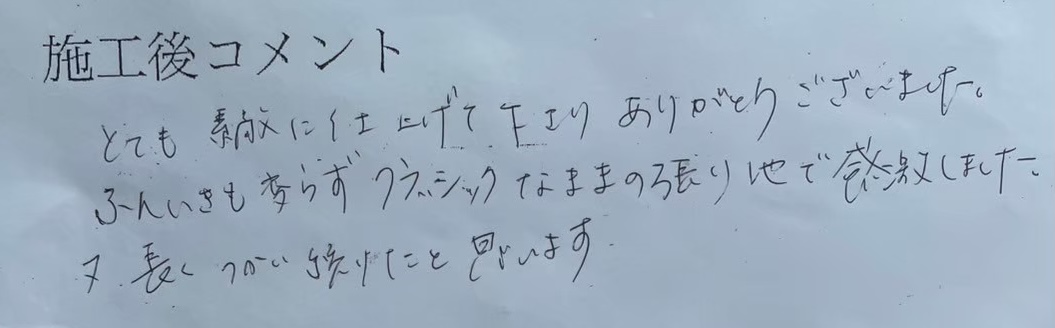 施工後コメント
とても素敵に仕上げて下さり ありがとうございました。
ふんいきも変らず クラッシックなままの張り地で感激しました
又 長く つかい続けたいと思います.